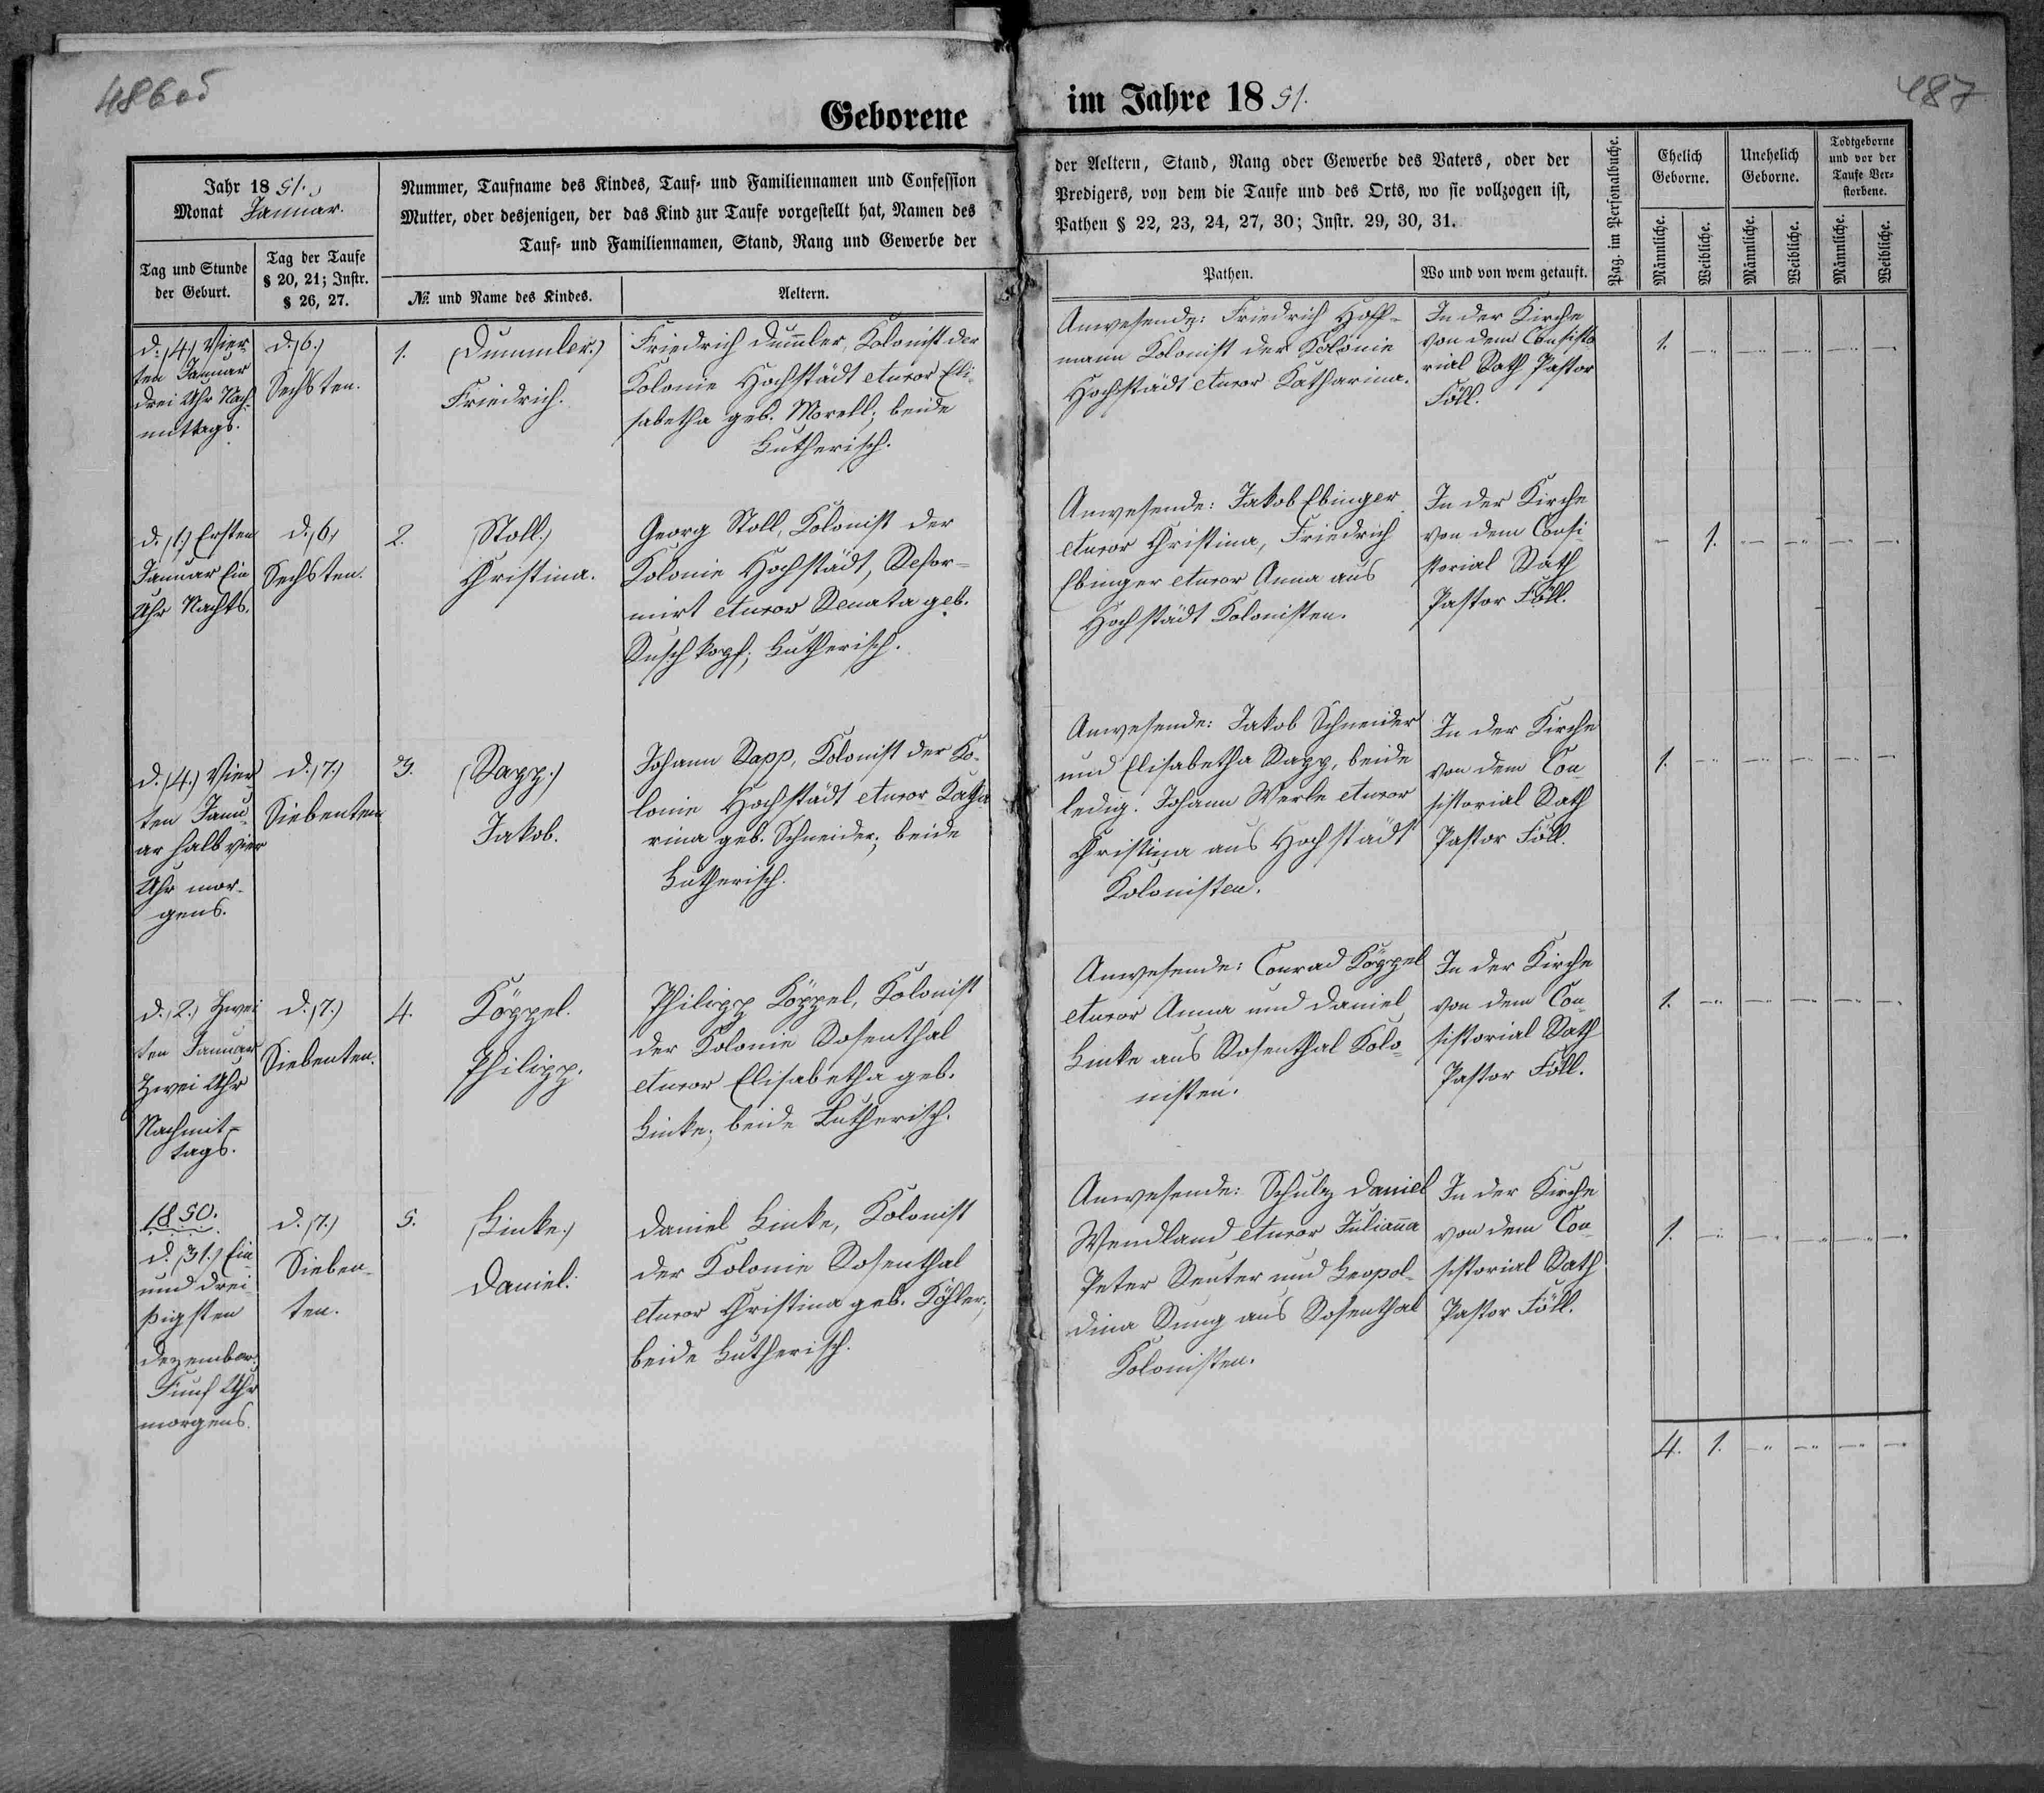 486об
487
Geborene im Jahre 1851.
Jahr 1851.
Monat Januar.
Tag und Stunde
der Geburt.
Tag der Taufe
§ 20, 21; Instr.
§ 26, 27.
Nummer, Taufname des Kindes, Tauf- und Familiennamen und Confession
Mutter, oder desjenigen, der das Kind zur Taufe vorgestellt hat, Namen des
Tauf- und Familiennamen, Stand, Rang und Gewerbe der
№ und Name des Kindes.
Aeltern.
der Aeltern, Stand, Rang oder Gewerbe des Vaters, oder der
Predigers, von dem die Taufe und des Orts, wo sie vollzogen ist,
Pathen § 22, 23, 24, 27, 30; Instr. 29, 30, 31.
Pathen.
Wo und von wem getauft.
Pag. im Personalbuche.
Ehelich
Geborne.
Unehelich
Geborne.
Todtgeborne
und vor der
Taufe Ver-
storbene.
Männliche.
Weibliche.
Männliche.
Weibliche.
Männliche.
Weibliche.
d. (4.) Vier
ten Januar
drei Uhr Nach
mittags.
d. (6.)
Sechsten.
1. (Dummler.)
Friedrich.
Friedrich Dum̄ler, Kolonist der
Kolonie Hochstädt et uxor Eli-
sabetha geb. Morell; beide
Lutherisch.
Anwesende: Friedrich Hoff-
mann Kolonist der Kolonie
Hochstädt et uxor Katharina.
In der Kirche
von dem Consisto
rial Rath Pastor
Föll.
1. — — — — —
d. (1.) Ersten
Januar Ein
Uhr Nachts.
d. (6.)
Sechsten.
2. (Stoll.)
Christina.
Georg Stoll, Kolonist der
Kolonie Hochstädt, Refor-
mirt et uxor Renata geb.
Ruschkopf; Lutherisch.
Anwesende: Jakob Ebinger
et uxor Christina, Friedrich
Ebinger et uxor Anna aus
Hochstädt Kolonisten.
In der Kirche
von dem Consi-
storial Rath
Pastor Föll.
— 1. — — — —
d. (4.) Vier-
ten Janu-
ar halb vier
Uhr mor-
gens.
d. (7.)
Siebenten
3. (Rapp.)
Jakob.
Johann Rapp, Kolonist der Ko-
lonie Hochstädt et uxor Katha
rina geb. Schneider; beide
Lutherisch.
Anwesende: Jakob Schneider
und Elisabetha Rapp, beide
ledig. Johann Werle et uxor
Christina aus Hochstädt
Kolonisten.
In der Kirche
von dem Con-
sistorial Rath
Pastor Föll.
1. — — — — —
d. (2.) Zwei
ten Januar
Zwei Uhr
Nachmit-
tags.
d. (7.)
Siebenten.
4. Köppel.
Philipp.
Philipp Köppel, Kolonist
der Kolonie Rosenthal
et uxor Elisabetha geb.
Linke; beide Lutherisch.
Anwesende: Conrad Köppel
et uxor Anna und Daniel
Linke aus Rosenthal Kolo-
nisten.
In der Kirche
von dem Con-
sistorial Rath
Pastor Föll.
1. — — — — —
1850.
d. (31.) Ein
und drei
ßigsten
Dezember
Fünf Uhr
morgens.
d. (7.)
Sieben-
ten.
5. (Linke.)
Daniel.
Daniel Linke, Kolonist
der Kolonie Rosenthal
et uxor Christina geb. Köhler;
beide Lutherisch.
Anwesende: Schulz Daniel
Wendland et uxor Julian̄a
Peter Reuter und Leopol-
dina Rung aus Rosenthal
Kolonisten.
In der Kirche
von dem Con-
sistorial Rath
Pastor Föll.
1. — — — — —
4. 1. — — — —